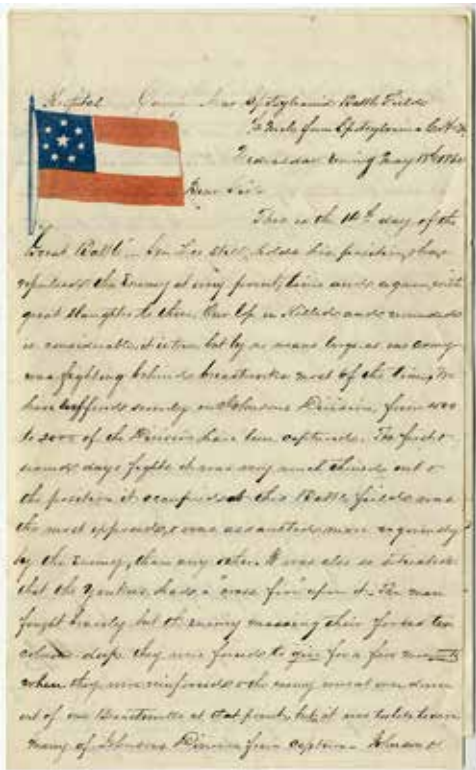 Hospital Camp Near Spotsylvania Battle Field
Miles from Spotsylvania C.H. Va
Wednesday Evening May 18th 1864
Dear Sir
This is the 14th day of the
Great Battle Gen Lee still holds his position, & has
repulsed the Enemy at every point, time and again, with
great slaughter to them. Our loss in Killed and wounded
is considerable, it is true, but by no means large, as our army
was fighting behind breastworks most of the time, We
have suffered severely in Johnsons Division, from
to 2000 of the Division have been captured. The first
days fights it was very much thinned out &
the position it occupied at this Battle field was
the most exposed, & was assaulted more vigorously
by the Enemy, than any other. It was also so situated
that the Yankees had a "cross fire" upon it. The men
fought bravely but the enemy massing their forces ten
columns deep they were forced to give for a few moments
when they were reinforced & the enemy were driven
out of our Breastworks at that point, but it was too late to save
many of Johnsons Division from capture. Johnson &